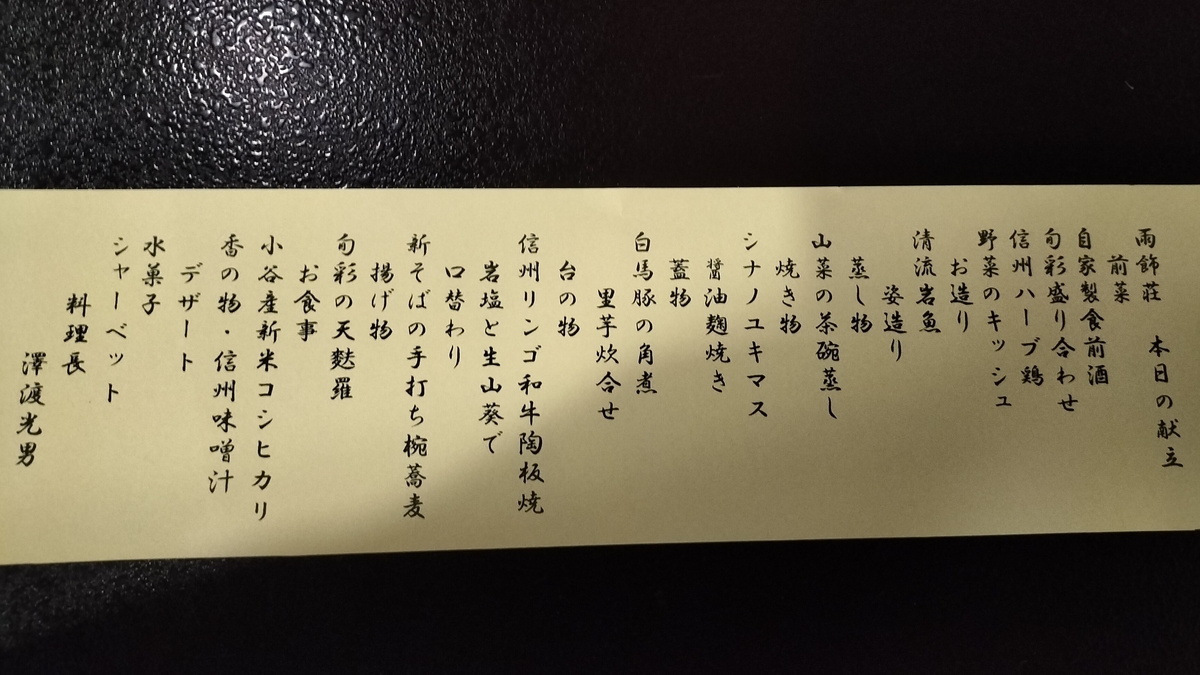 雨飾荘　本日の献立
前菜
自家製食前酒
旬彩盛り合わせ
信州ハーブ鶏
野菜のキッシュ
お造り
清流岩魚
姿造り
蒸し物
山菜の茶碗蒸し
焼き物
シナノユキマス
醤油麹焼き
蓋物
白馬豚の角煮
里芋炊合せ
台の物
信州リンゴ和牛陶板焼
岩塩と生山葵で
口替わり
新そばの手打ち椀蕎麦
揚げ物
旬彩の天麩羅
お食事
小谷産新米コシヒカリ
香の物・信州味噌汁
デザート
水菓子
シャーベット
料理長
澤渡光男